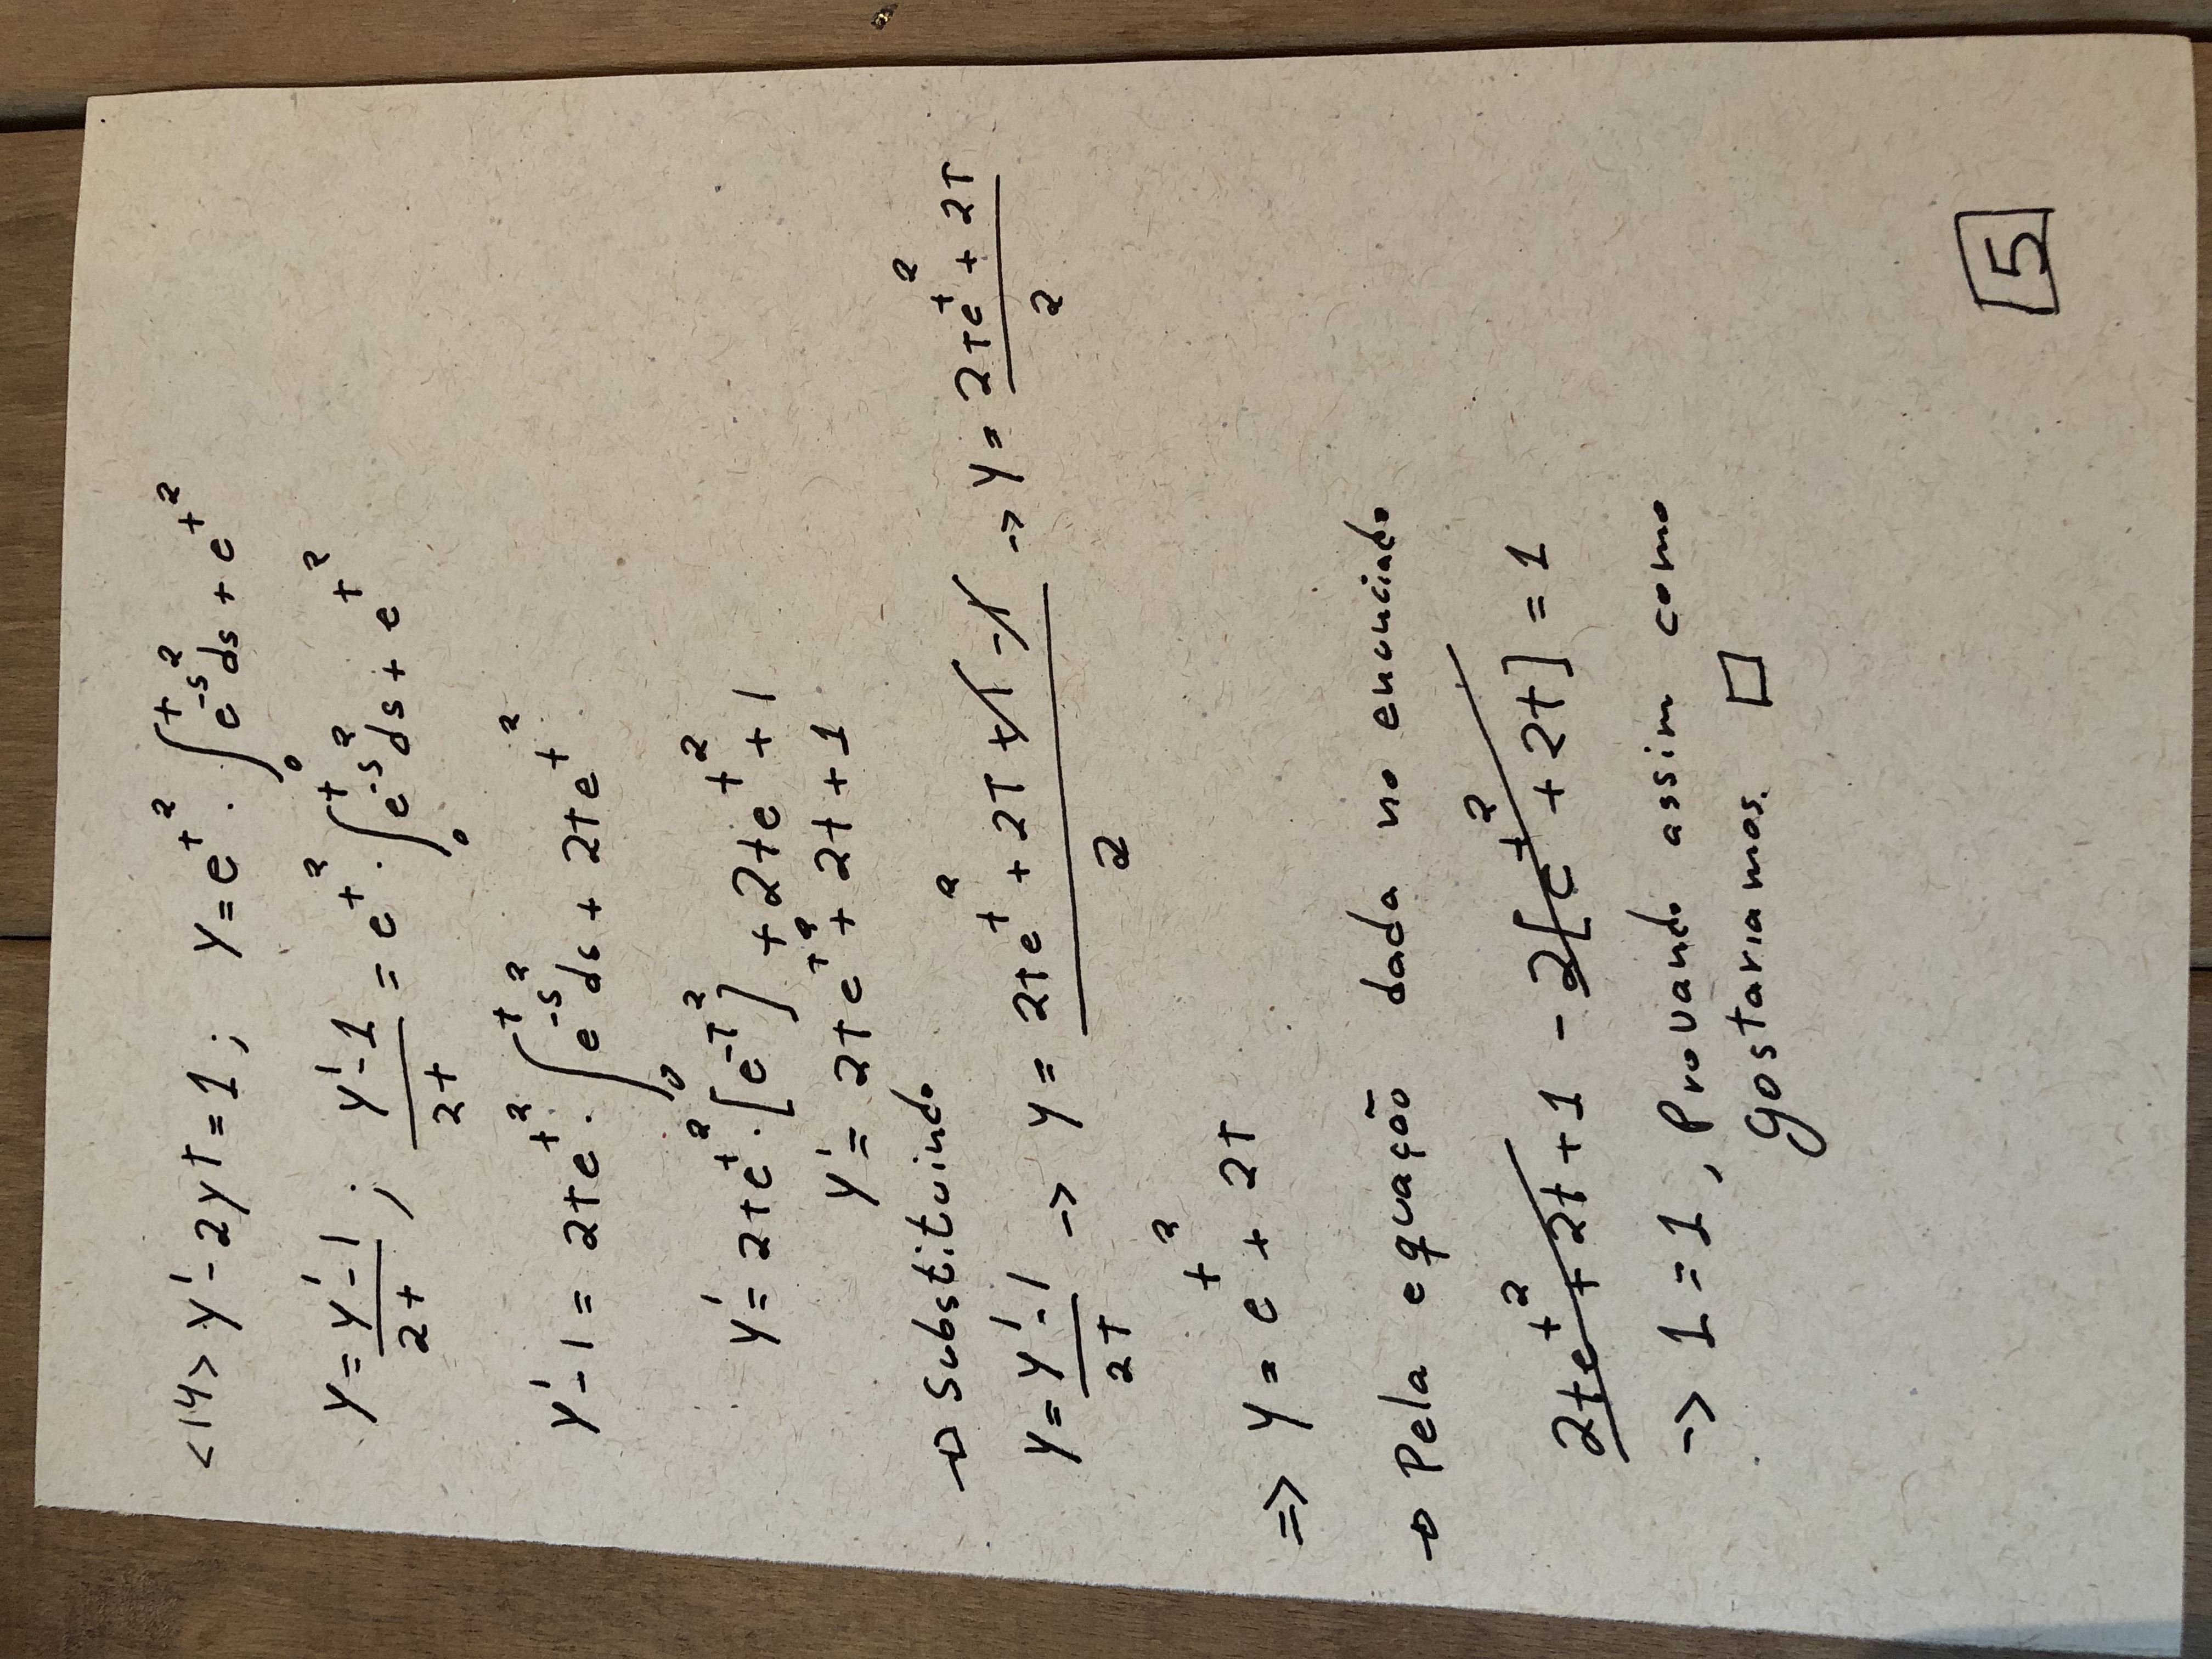 <14> y' - 2yt = 1; y = e^{t^2} · ∫_0^t e^{-s^2} ds + e^{t^2}
y = \frac{y' - 1}{2t}; \frac{y' - 1}{2t} = e^{t^2} · ∫_0^t e^{-s^2} ds + e^{t^2}
y' - 1 = 2te^{t^2} · ∫_0^t e^{-s^2} ds + 2te^{t^2}
y' = 2te^{t^2} · [e^{-t^2}] + 2te^{t^2} + 1
y' = 2te^{t^2} + 2t + 1
→ Substituindo
y = \frac{y' - 1}{2t} -> y = \frac{2te^{t^2} + 2t + 1 - 1}{2} -> y = \frac{2te^{t^2} + 2t}{2}
=> y = e^{t^2} + 2t
→ Pela equação dada no enunciado
2te^{t^2} + 2t + 1 - 2[e^{t^2} + 2t] = 1
-> 1 = 1, Provando assim como
gostariamos. □
5